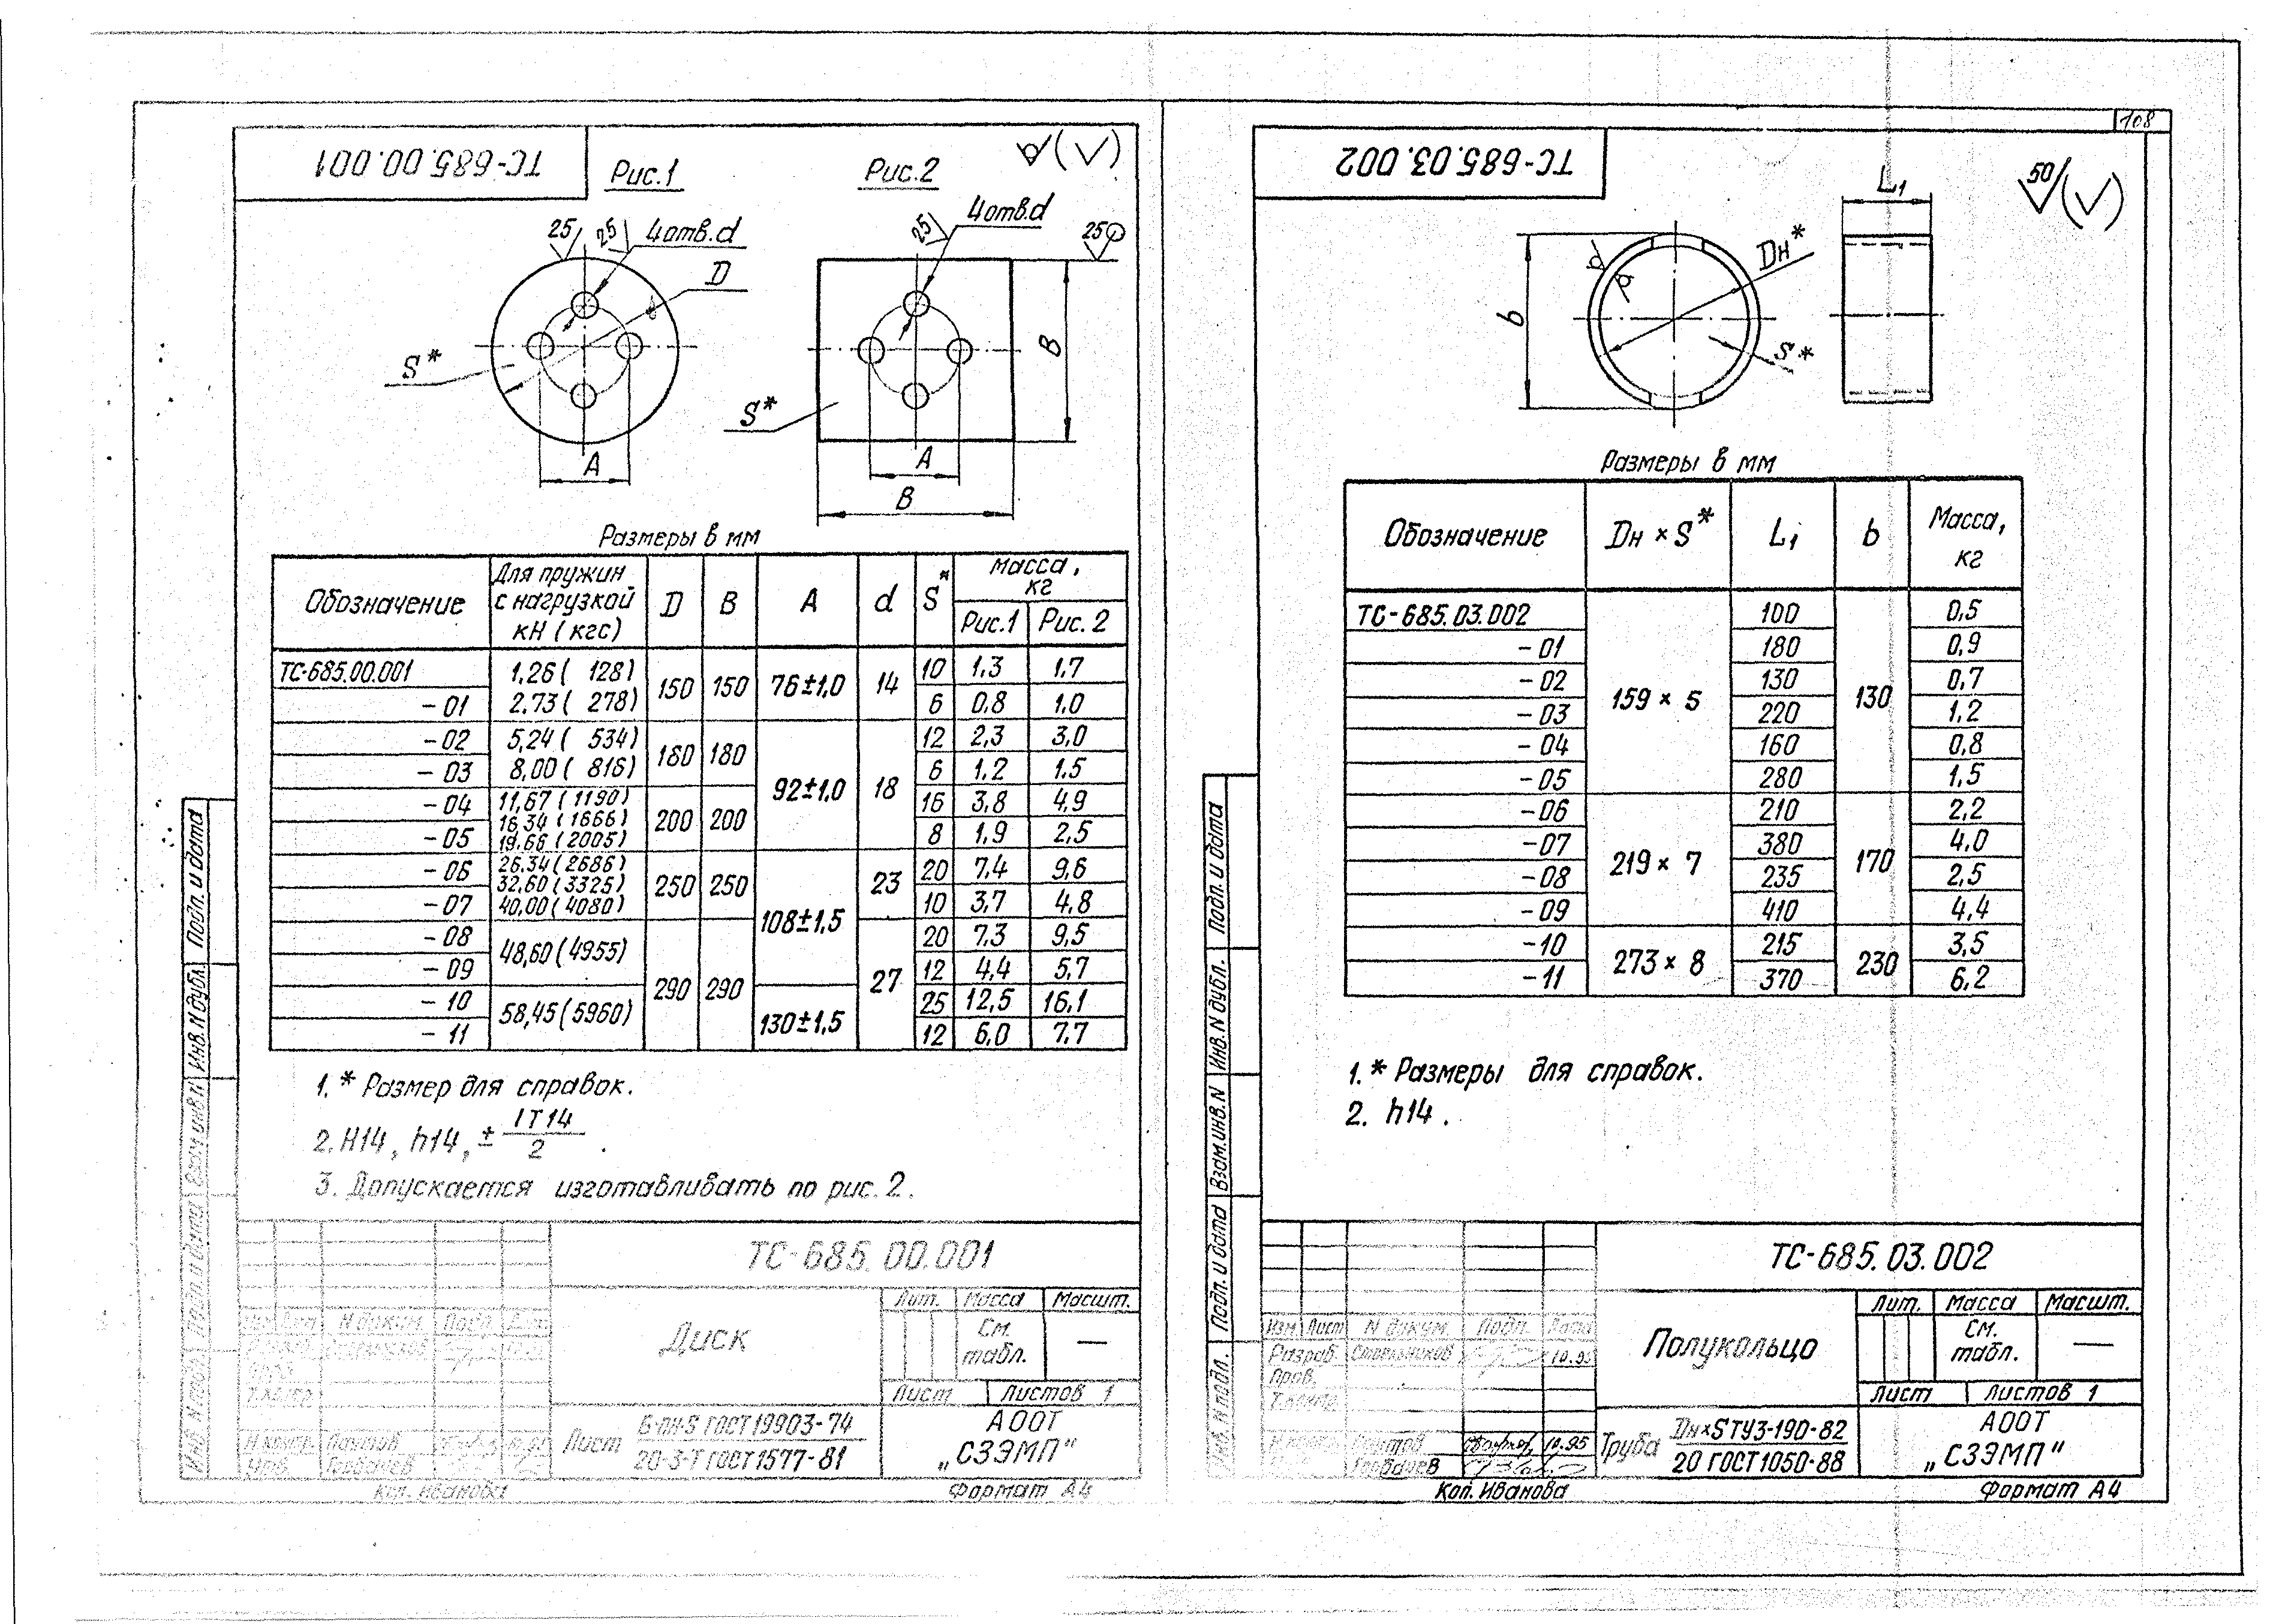 ТС-685.00.001
Рис.1
Рис.2
25
25
4 отв. d
D
S*
A
25
4 отв. d
25
B
S*
A
B
Размеры в мм
Обозначение | Для пружин с нагрузкой кН (кгс) | D | B | A | d | S* | Масса, кг
Рис.1 | Рис. 2
ТС-685.00.001 | 1,26 ( 128) | 150 | 150 | 76±1,0 | 14 | 10 | 1,3 | 1,7
-01 | 2.73 ( 278) | 6 | 0,8 | 1,0
-02 | 5,24 ( 534) | 180 | 180 | 92±1,0 | 18 | 12 | 2,3 | 3,0
-03 | 8,00 ( 816) | 6 | 1,2 | 1,5
-04 | 11,67 (1190) | 200 | 200 | 16 | 3,8 | 4,9
16,34 (1666)
-05 | 19,66 (2005) | 8 | 1,9 | 2,5
-06 | 26,34 (2686) | 250 | 250 | 108±1,5 | 23 | 20 | 7,4 | 9,6
32,60 (3325)
-07 | 40,00 (4080) | 10 | 3,7 | 4,8
-08 | 48,60 (4955) | 290 | 290 | 27 | 20 | 7,3 | 9,5
-09 | 12 | 4,4 | 5,7
-10 | 58,45 (5960) | 130±1,5 | 25 | 12,5 | 16,1
-11 | 12 | 6,0 | 7,7
1. * Размер для справок.
2. H14, h14, ± IT14/2 .
3. Допускается изготавливать по рис. 2.
ТС-685.00.001
Диск
Лит. | Масса | Масшт.
См. табл. | —
Лист | Листов 1
N докум. | Подп.
Н.контр. Паутов
Утв. Горбачев
Лист Б-ПН-S ГОСТ 19903-74
20-3-Т ГОСТ 1577-81
АООТ
„СЗЭМП"
Коп. Иванова
Формат А4
Подп. и дата
Инв. N дубл.
Взам. инв. N
Подп. и дата
Инв. N подл.
108
ТС-685.03.002
50
L1
b
Dн*
S*
Размеры в мм
Обозначение | Dн × S* | L1 | b | Масса, кг
ТС-685.03.002 | 159 × 5 | 100 | 130 | 0,5
-01 | 180 | 0,9
-02 | 130 | 0,7
-03 | 220 | 1,2
-04 | 160 | 0,8
-05 | 280 | 1,5
-06 | 219 × 7 | 210 | 170 | 2,2
-07 | 380 | 4,0
-08 | 235 | 2,5
-09 | 410 | 4,4
-10 | 273 × 8 | 215 | 230 | 3,5
-11 | 370 | 6,2
1. * Размеры для справок.
2. h14 .
ТС-685.03.002
Полукольцо
Лит. | Масса | Масшт.
См. табл. | —
Лист | Листов 1
Изм Лист N докум. Подп. Дата
Разраб. 10.95
Пров.
Т.контр.
Н.контр. Паутов 10.95
Горбачев
Труба Dн×S ТУ3-190-82
20 ГОСТ 1050-88
АООТ
„СЗЭМП"
Коп. Иванова
Формат А4
Подп. и дата
Инв. N дубл.
Взам. инв. N
Подп. и дата
Инв. N подл.